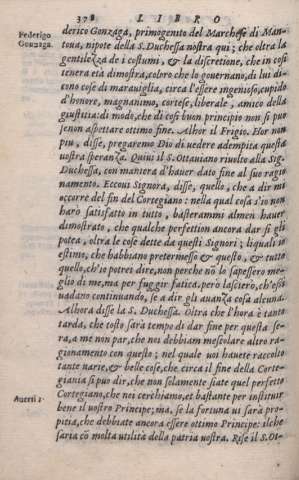 378 LIBRO
Federigo
Gonzaga.
derico Gonzaga, primogenito del Marchese di Man-
toua, nipote della S. Duchessa nostra qui; che oltra la
gentilezza de i costumi, & la discretione, che in cosi
tenera età dimostra, coloro che lo gouernano, di lui di-
cono cose di marauiglia, circa l'essere ingenioso, cupido
d'honore, magnanimo, cortese, liberale, amico della
giustitia: di modo, che di cosi buon principio non si puo
se non aspettare ottimo fine. Alhor il Frigio. Hor non
piu, disse, pregaremo Dio di uedere adempita questa
uostra speranza. Quiui il S. Ottauiano riuolto alla Sig.
Duchessa, con maniera d'hauer dato fine al suo ragio
namento. Eccoui Signora, disse, quello, che a dir mi
occorre del fin del Cortegiano: nella qual cosa s'io non
harò satisfatto in tutto, basterammi almen hauer
dimostrato, che qualche perfettion ancora dar se gli
potea, oltra le cose dette da questi Signori; liquali io
estimo, che habbiano pretermesso & questo, & tutto
quello, ch'io potrei dire, non perche no'l sapessero me-
glio di me, ma per fuggir fatica, però lasciero, ch'essi
uadano continuando, se a dir gli auanza cosa alcuna.
Alhora disse la S. Duchessa. Oltra che l'hora è tanto
tarda, che tosto sarà tempo di dar fine per questa se-
ra, a me non par, che noi debbiam mescolare altro ra-
gionamento con questo; nel quale uoi hauete raccolto
tante uarie, & belle cose, che circa il fine della Corte-
giania si puo dir, che non solamente siate quel perfetto
Cortegiano, che noi cerchiamo, et bastante per instituir
bene il uostro Principe; ma, se la fortuna ui sarà pro-
pitia, che debbiate ancora essere ottimo Principe: ilche
saria cō molta utilità della patria uostra. Rise il S. Ot-